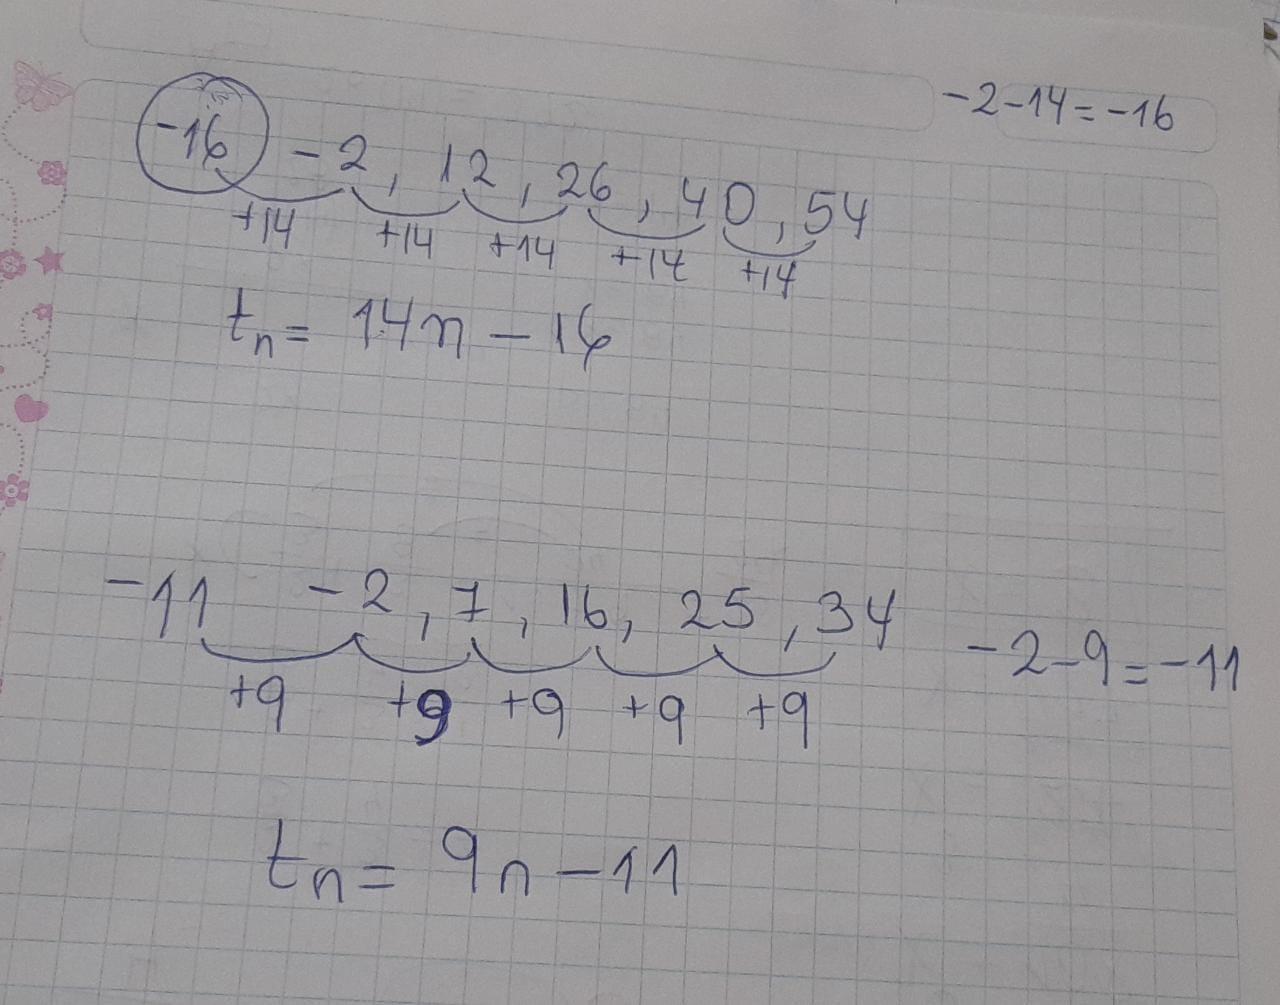 -2-14=-16
-16 -2, 12, 26, 40, 54
+14 +14 +14 +14 +14
tn= 14n-16
-11 -2, 7, 16, 25, 34
-2-9=-11
+9 +9 +9 +9 +9
tn= 9n-11